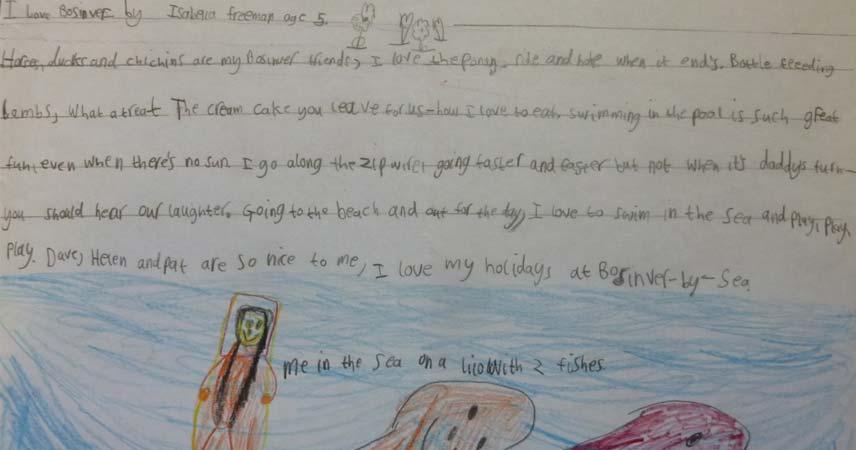 I Love Bosinver by Isabella freeman age 5.
Horse, ducks and chichins are my Bosinver friends, I love the pony ride and hate when it end's. Bottle feeding
Lambs, what a treat The cream cake you leave for us-how I love to eat. swimming in the pool is such great
fun, even when there's no sun I go along the zip wire, going faster and faster but not when it's daddy's turn-
you should hear our laughter. Going to the beach and out for the day, I love to swim in the sea and play, play,
play. Dave, Helen and pat are so nice to me, I love my holidays at Bosinver-by-Sea.
me in the Sea on a lilo with 2 fishes.